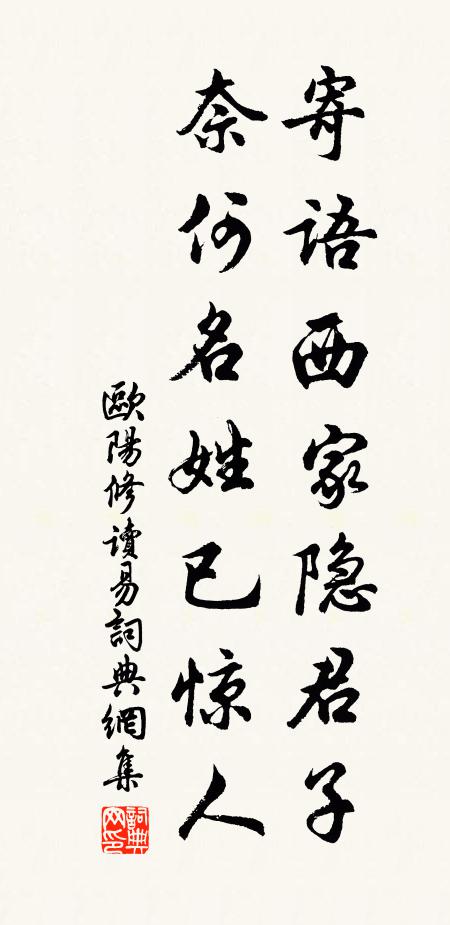 寄语西家隐君子
奈何名姓已惊人
歐陽修讀易詞典網集
詞典网印